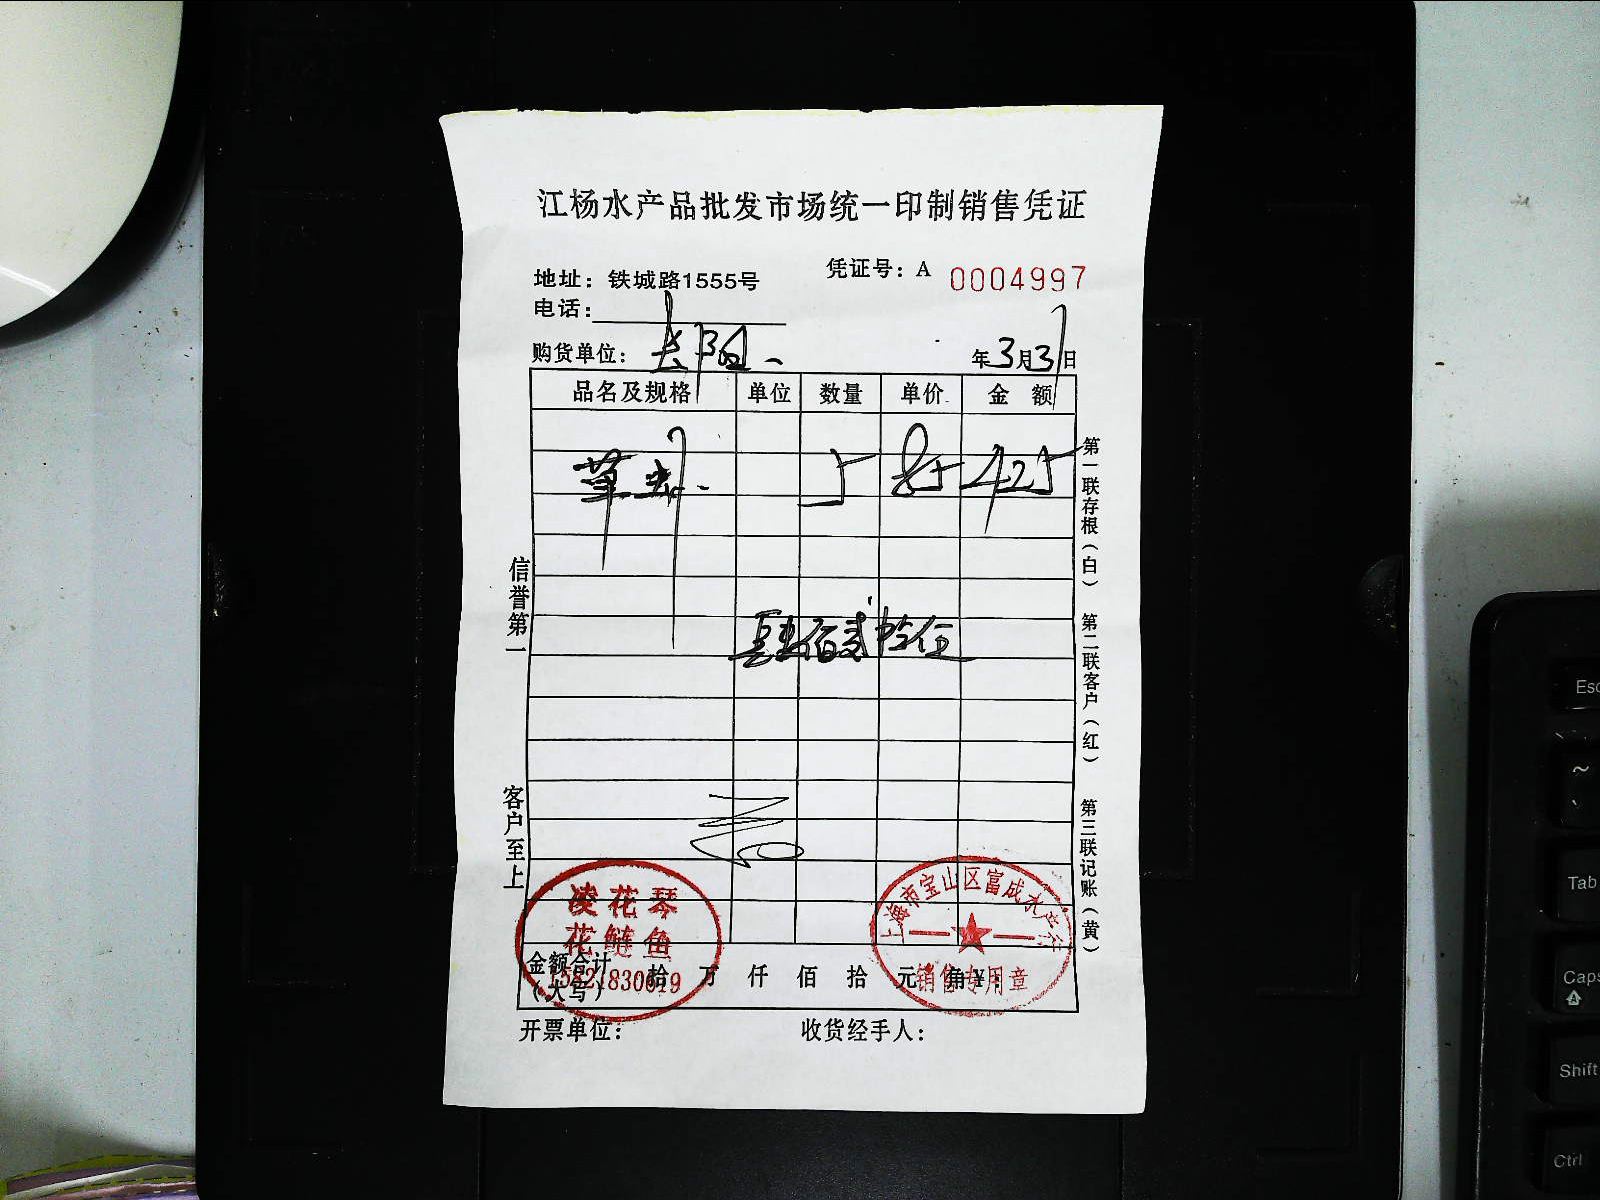 江杨水产品批发市场统一印制销售凭证
地址：铁城路1555号
凭证号：A 0004997
电话：
购货单位：
年3月31日
品名及规格 单位 数量 单价 金额
5 85 425
肆佰贰拾伍
信誉第一
客户至上
第一联存根（白）
第二联客户（红）
第三联记账（黄）
凌花琴
花鲢鱼
上海市宝山区富成水产行
销售专用章
金额合计（大写） 拾 万 仟 佰 拾 元 角 ¥：
开票单位：
收货经手人：